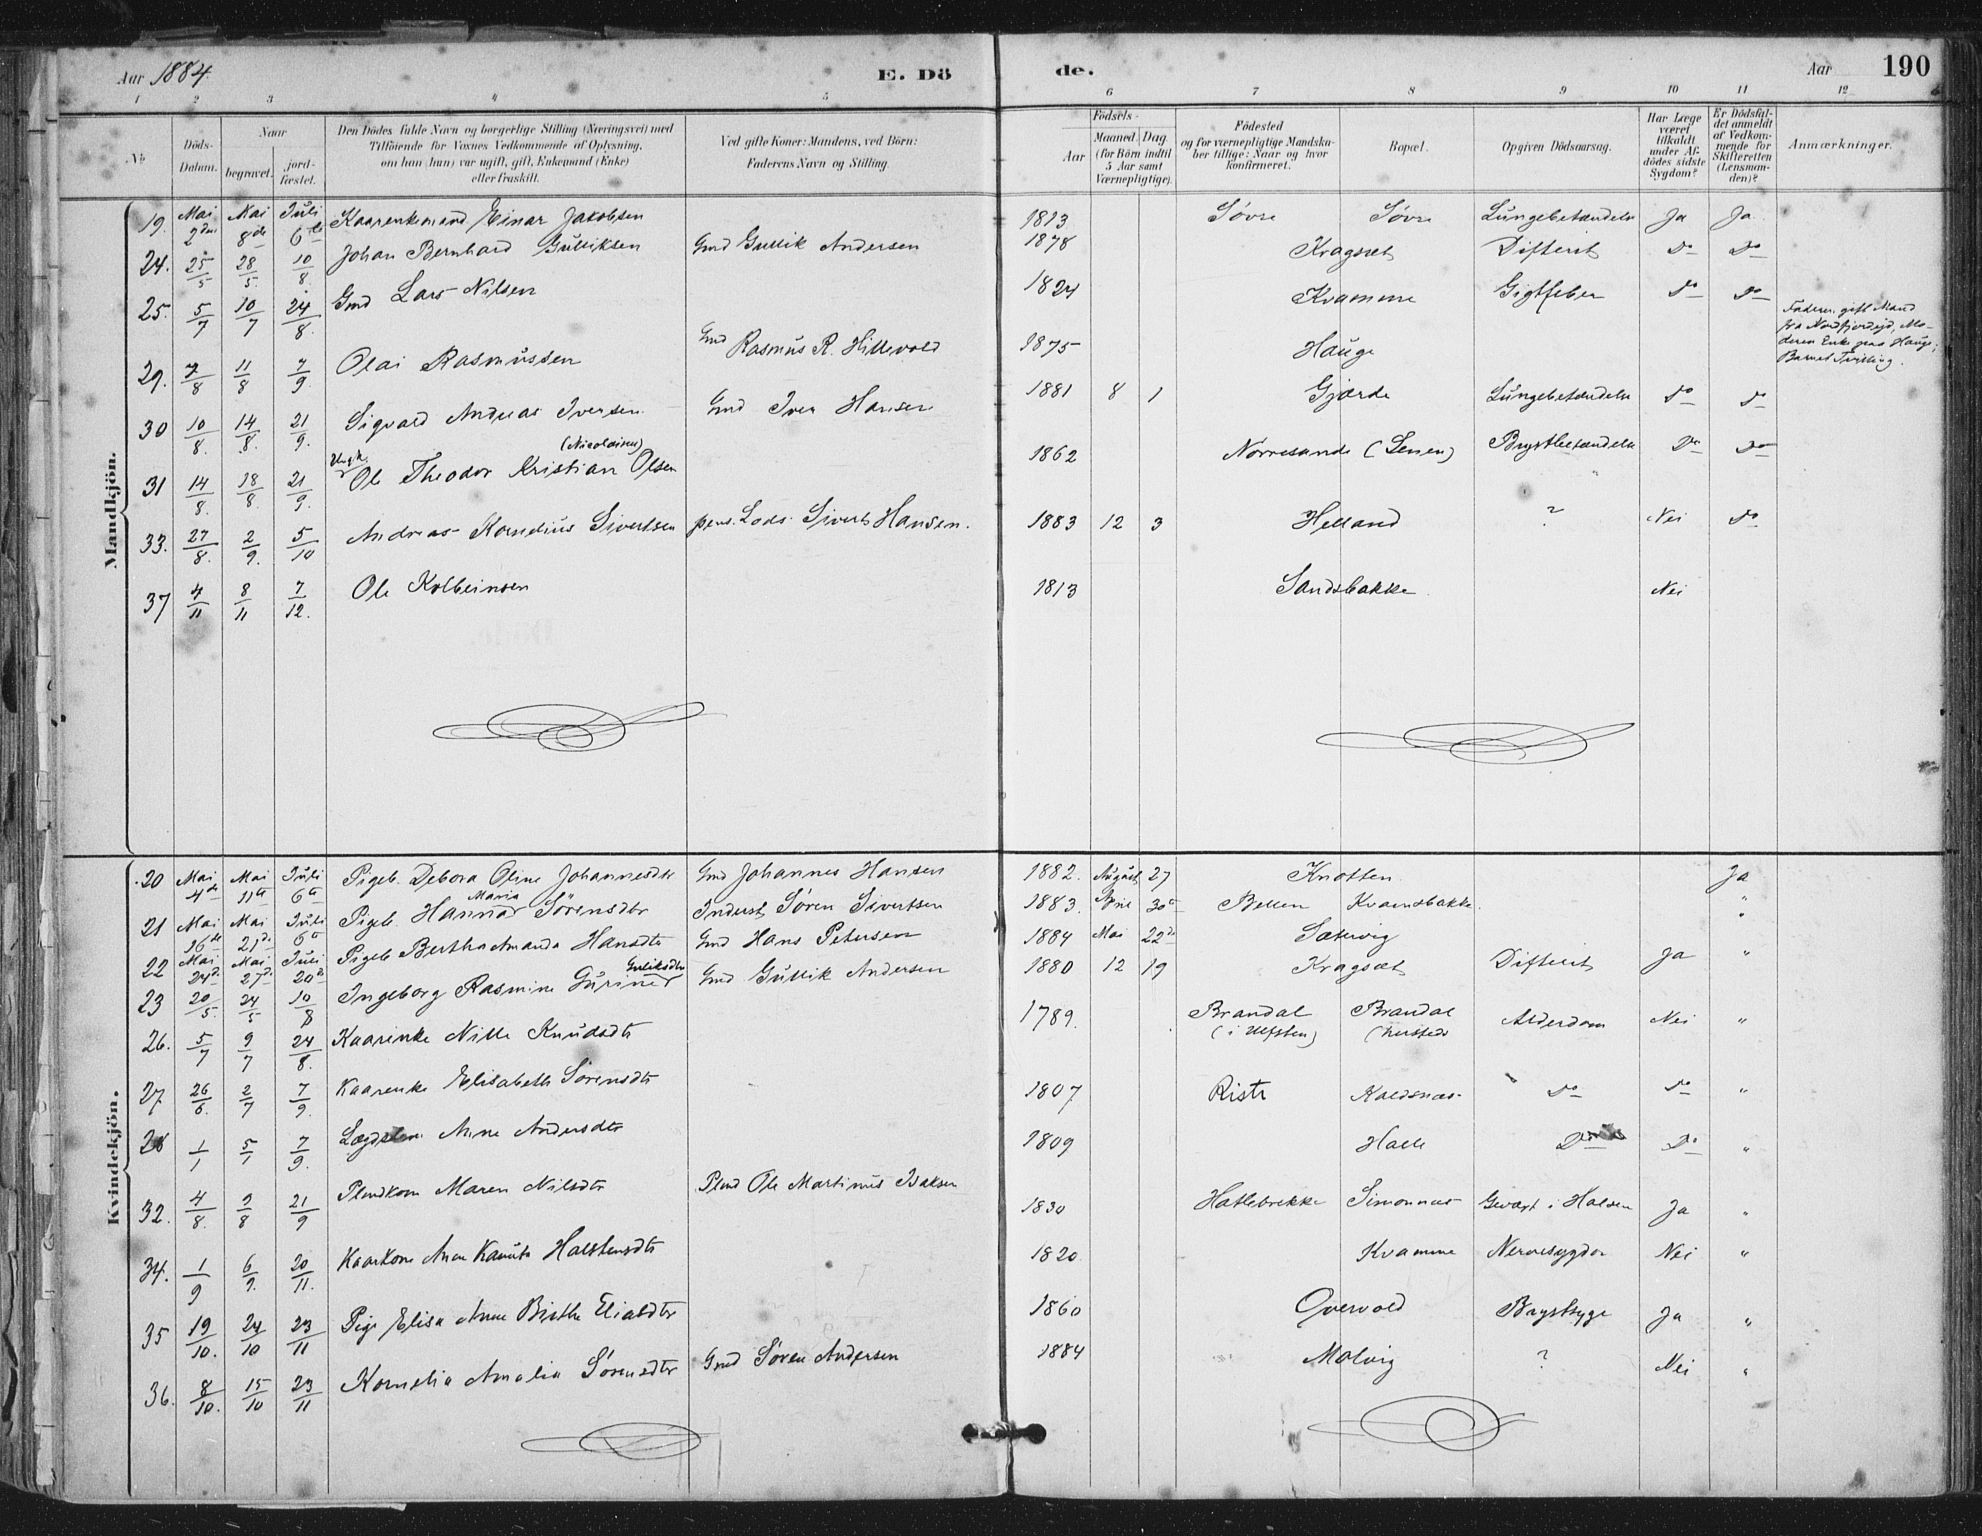 Aar 1884. E. Döde. Aar 190
1 2 3 4 5 6 7 8 9 10 11 12
№ Döds-Datum. Naar begravet. jord-fæstet. Den Dödes fulde Navn og borgerlige Stilling (Næringsvei) med Tilföiende for Voxnes Vedkommende af Oplysning, om han (hun) var ugift, gift, Enkemand (Enke) eller fraskilt. Ved gifte Koner: Mandens, ved Börn: Faderens Navn og Stilling. Födsels- Aar Maaned Dag (for Börn indtil 5 Aar samt Værnepligtige). Födested og for værnepligtige Mandskaber tillige: Naar og hvor konfirmeret. Bopæl. Opgiven Dödsaarsag. Har Læge været tilkaldt under Afdödes sidste Sygdom? Er Dödsfaldet anmeldt af Vedkommende for Skifteretten (Lensmanden)? Anmærkninger.
Mandkjön.
19. Mai 2den Mai 8de Juli 6te Kaarenkemand Einar Jakobsen 1813 Søvre Søvre Lungebetændelse Ja Ja
24. 25/5 28/5 10/8 Johan Bernhard Gulliksen Gmd Gullik Andersen 1878 Kragset Difterit Do Do
25. 5/7 10/7 24/8. Gmd Lars Nilsen 1824 Kvamme Gigtfeber Do Do
29. 7/8 11/8 7/9. Olai Rasmussen Gmd Rasmus R. Hillevold 1875 Hauge Faderen gift Mand fra Nordfjordejd, Moderen Enke paa Hauge; Barnet Tvilling.
30 10/8. 14/8. 21/9. Sigvald Andreas Iversen Gmd Iver Hansen 1881 8 1 Gjærde Lungebetændelse Do Do
31 14/8. 18/8. 21/9. Ungk. Ole Theodor Kristian Olsen (Nicolaisen) 1862 Norresande (Lenen) Brystbetændelse Do Do
33. 27/8. 2/9. 5/10 Andreas Kornelius Sivertsen pens. Lods Sivert Hansen. 1883 12 3 Helland ? Nei Do
37 4/11 8/11 7/12. Ole Kolbeinsen 1813 Sandsbakke Nei
Kvindekjön.
20 Mai 4de Mai 11te Juli 6te Pigeb. Debora Oline Johannesdtr Gmd Johannes Hansen 1882. August 27 Knotten Ja
21 Mai 16de Mai 21de Juli 6te Pigeb. Hanna Maria Sørensdtr Inderst Søren Sivertsen 1883. April 30te Bellen Kvamsbakke. "
22 Mai 24d Mai 27d Juli 20d Pigeb Bertha Amanda Hansdtr Gmd Hans Petersen 1884 Mai 22de Sætervig "
23 20/5. 24/5 10/8 Ingeborg Rasmine Guriner Gulliksdtr Gmd Gullik Andersen 1880 12 19 Kragset Difterit Ja "
26. 5/7 9/7 24/8. Kaarenke Nille Knudsdtr 1789. Brandal (i Ulfsten) Brandal Alderdom Nei "
27. 26/6. 2/7 7/9. Kaarenke Elisabeth Sørensdtr 1807 Riste Koldsnæs Do Do "
28 1/1 5/1 7/9. Lægdslem Anne Andersdtr 1809 Halle Do Do "
32. 4/8. 9/8 21/9 Plmdkone Maren Nilsdtr Plmd Ole Martinus Isaksen 1830 Hatlebrekke Simonnæs Gevæxt i Halsen Ja "
34. 1/9 6/9. 20/11. Kaarkone Ane Hansdtr 1820. Kvamme Nervesygdom Nei "
35 19/10. 24/10 23/11 Pige Elisa Anne Birthe Eliasdtr 1860 Overvold Brystsyge Ja "
36. 8/10. 15/10 23/11 Kornelia Amalia Sørensdtr Gmd Søren Andersen 1884 Molvig ? Nei "